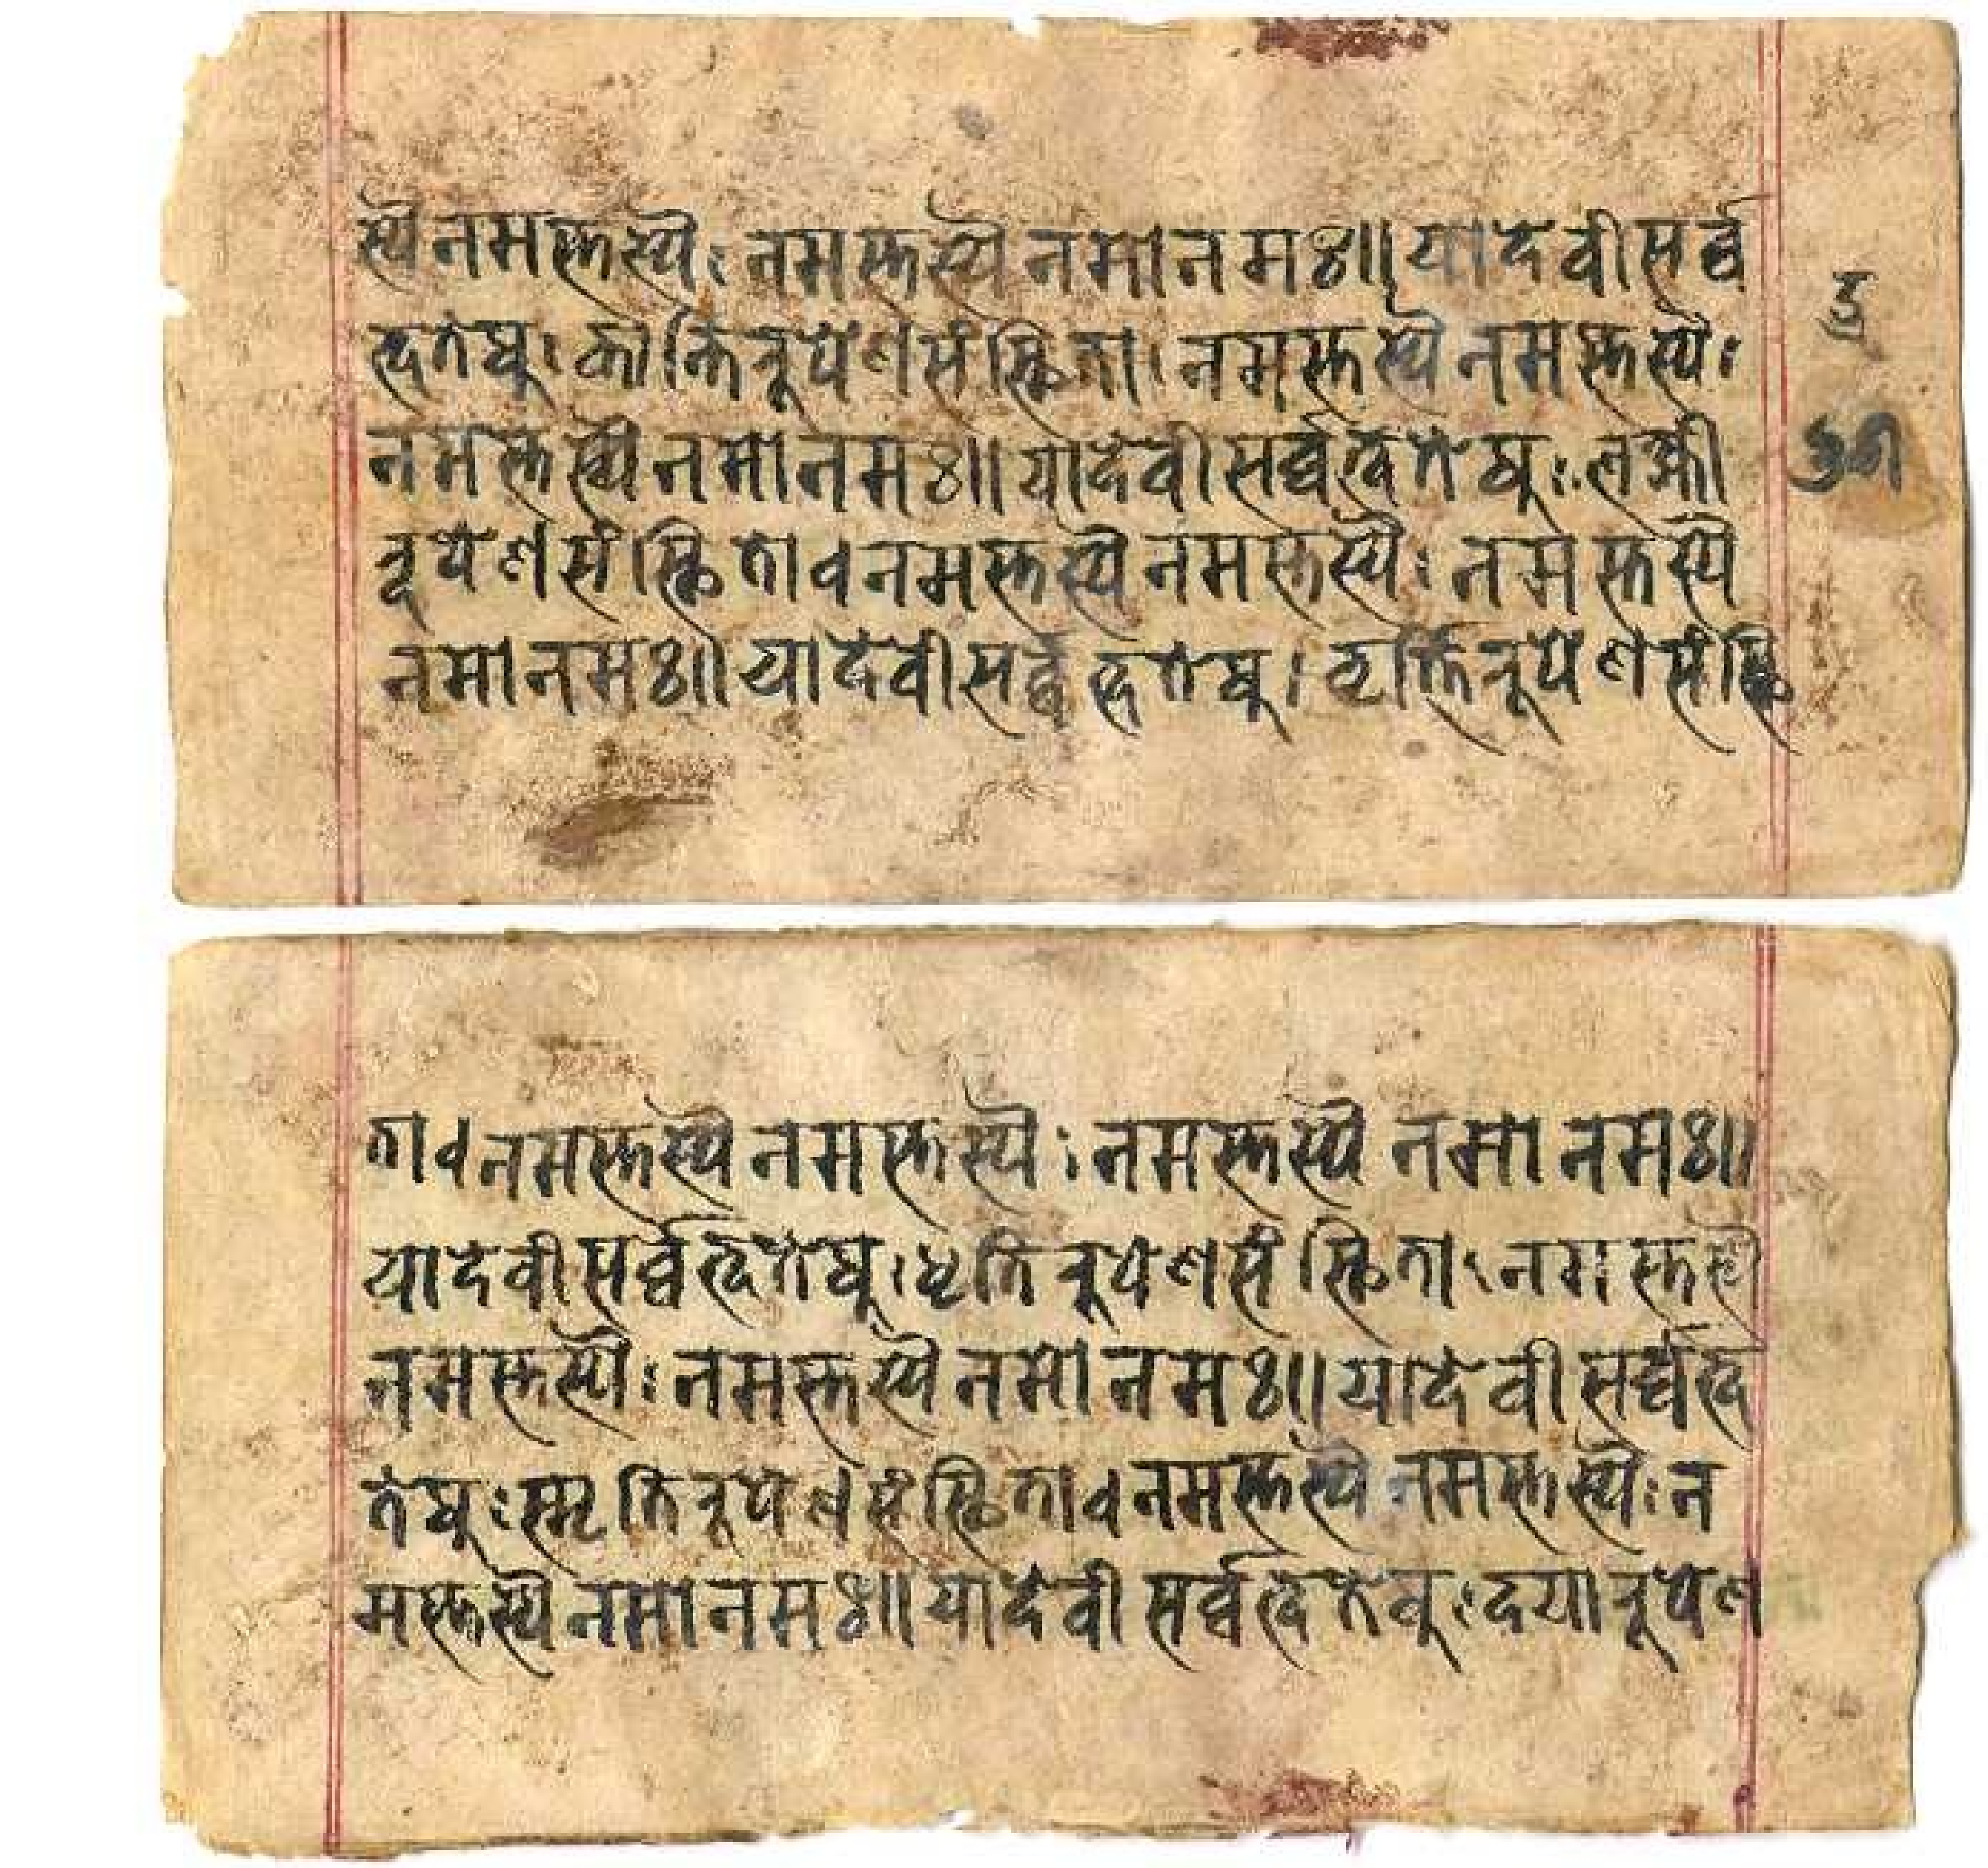 स्यै नमस्तस्यैः नमस्तस्यै नमोनमः॥ यादेवीसर्व्व
भूतेषू। कान्तिरूपेणसंस्थिता। नमस्तस्यै नमस्तस्यैः
नमस्तस्यै नमोनमः॥ यादेवीसर्व्वभूतेषूः लक्ष्मी
रूपेणसंस्थिता व नमस्तस्यै नमस्तस्यैः नमस्तस्यै
नमोनमः॥ यादेवीसर्व्वभूतेषू। वृत्तिरूपेणसंस्थि
ता व नमस्तस्यै नमस्तस्यैः नमस्तस्यै नमो नमः॥
यादेवीसर्व्वभूतेषू। धृतिरूपेणसंस्थिता। नमस्तस्यै
नमस्तस्यैः नमस्तस्यै नमोनमः॥ यादेवीसर्व्वभू
तेषूः स्मृतिरूपेणसंस्थिता व नमस्तस्यै नमस्तस्यैः न
मस्तस्यै नमोनमः॥ यादेवीसर्व्वभूतेषूः दयारूपेण